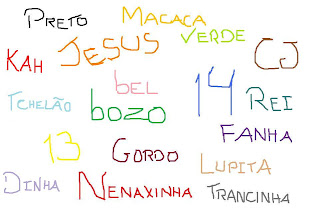 PRETO
MACACA
VERDE
CJ
KAH
JESUS
bel
14
REI
TCHELÃO
bozo
FANHA
13
GORDO
LUPITA
DINHA
NENAXINHA
TRANCINHA